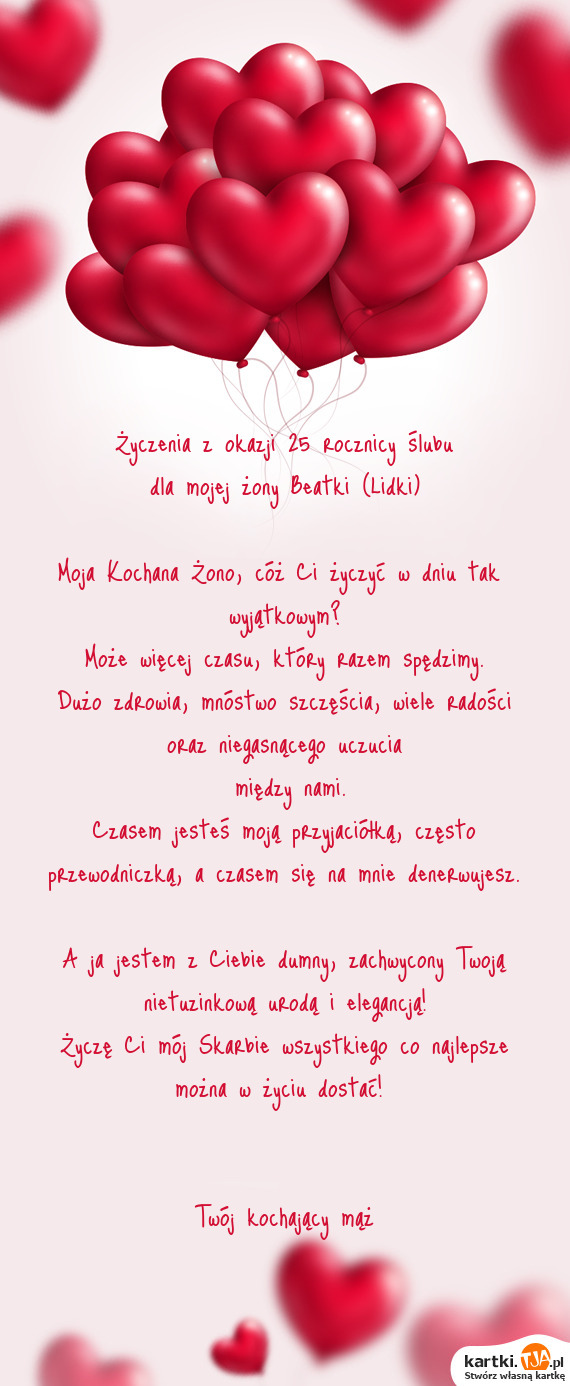 Życzenia z okazji 25 rocznicy ślubu
dla mojej żony Beatki (Lidki)
Moja Kochana Żono, cóż Ci życzyć w dniu tak
wyjątkowym?
Może więcej czasu, który razem spędzimy.
Dużo zdrowia, mnóstwo szczęścia, wiele radości
oraz niegasnącego uczucia
między nami.
Czasem jesteś moją przyjaciółką, często
przewodniczką, a czasem się na mnie denerwujesz.
A ja jestem z Ciebie dumny, zachwycony Twoją
nietuzinkową urodą i elegancją!
Życzę Ci mój Skarbie wszystkiego co najlepsze
można w życiu dostać!
Twój kochający mąż
kartki.TJA.pl
Stwórz własną kartkę